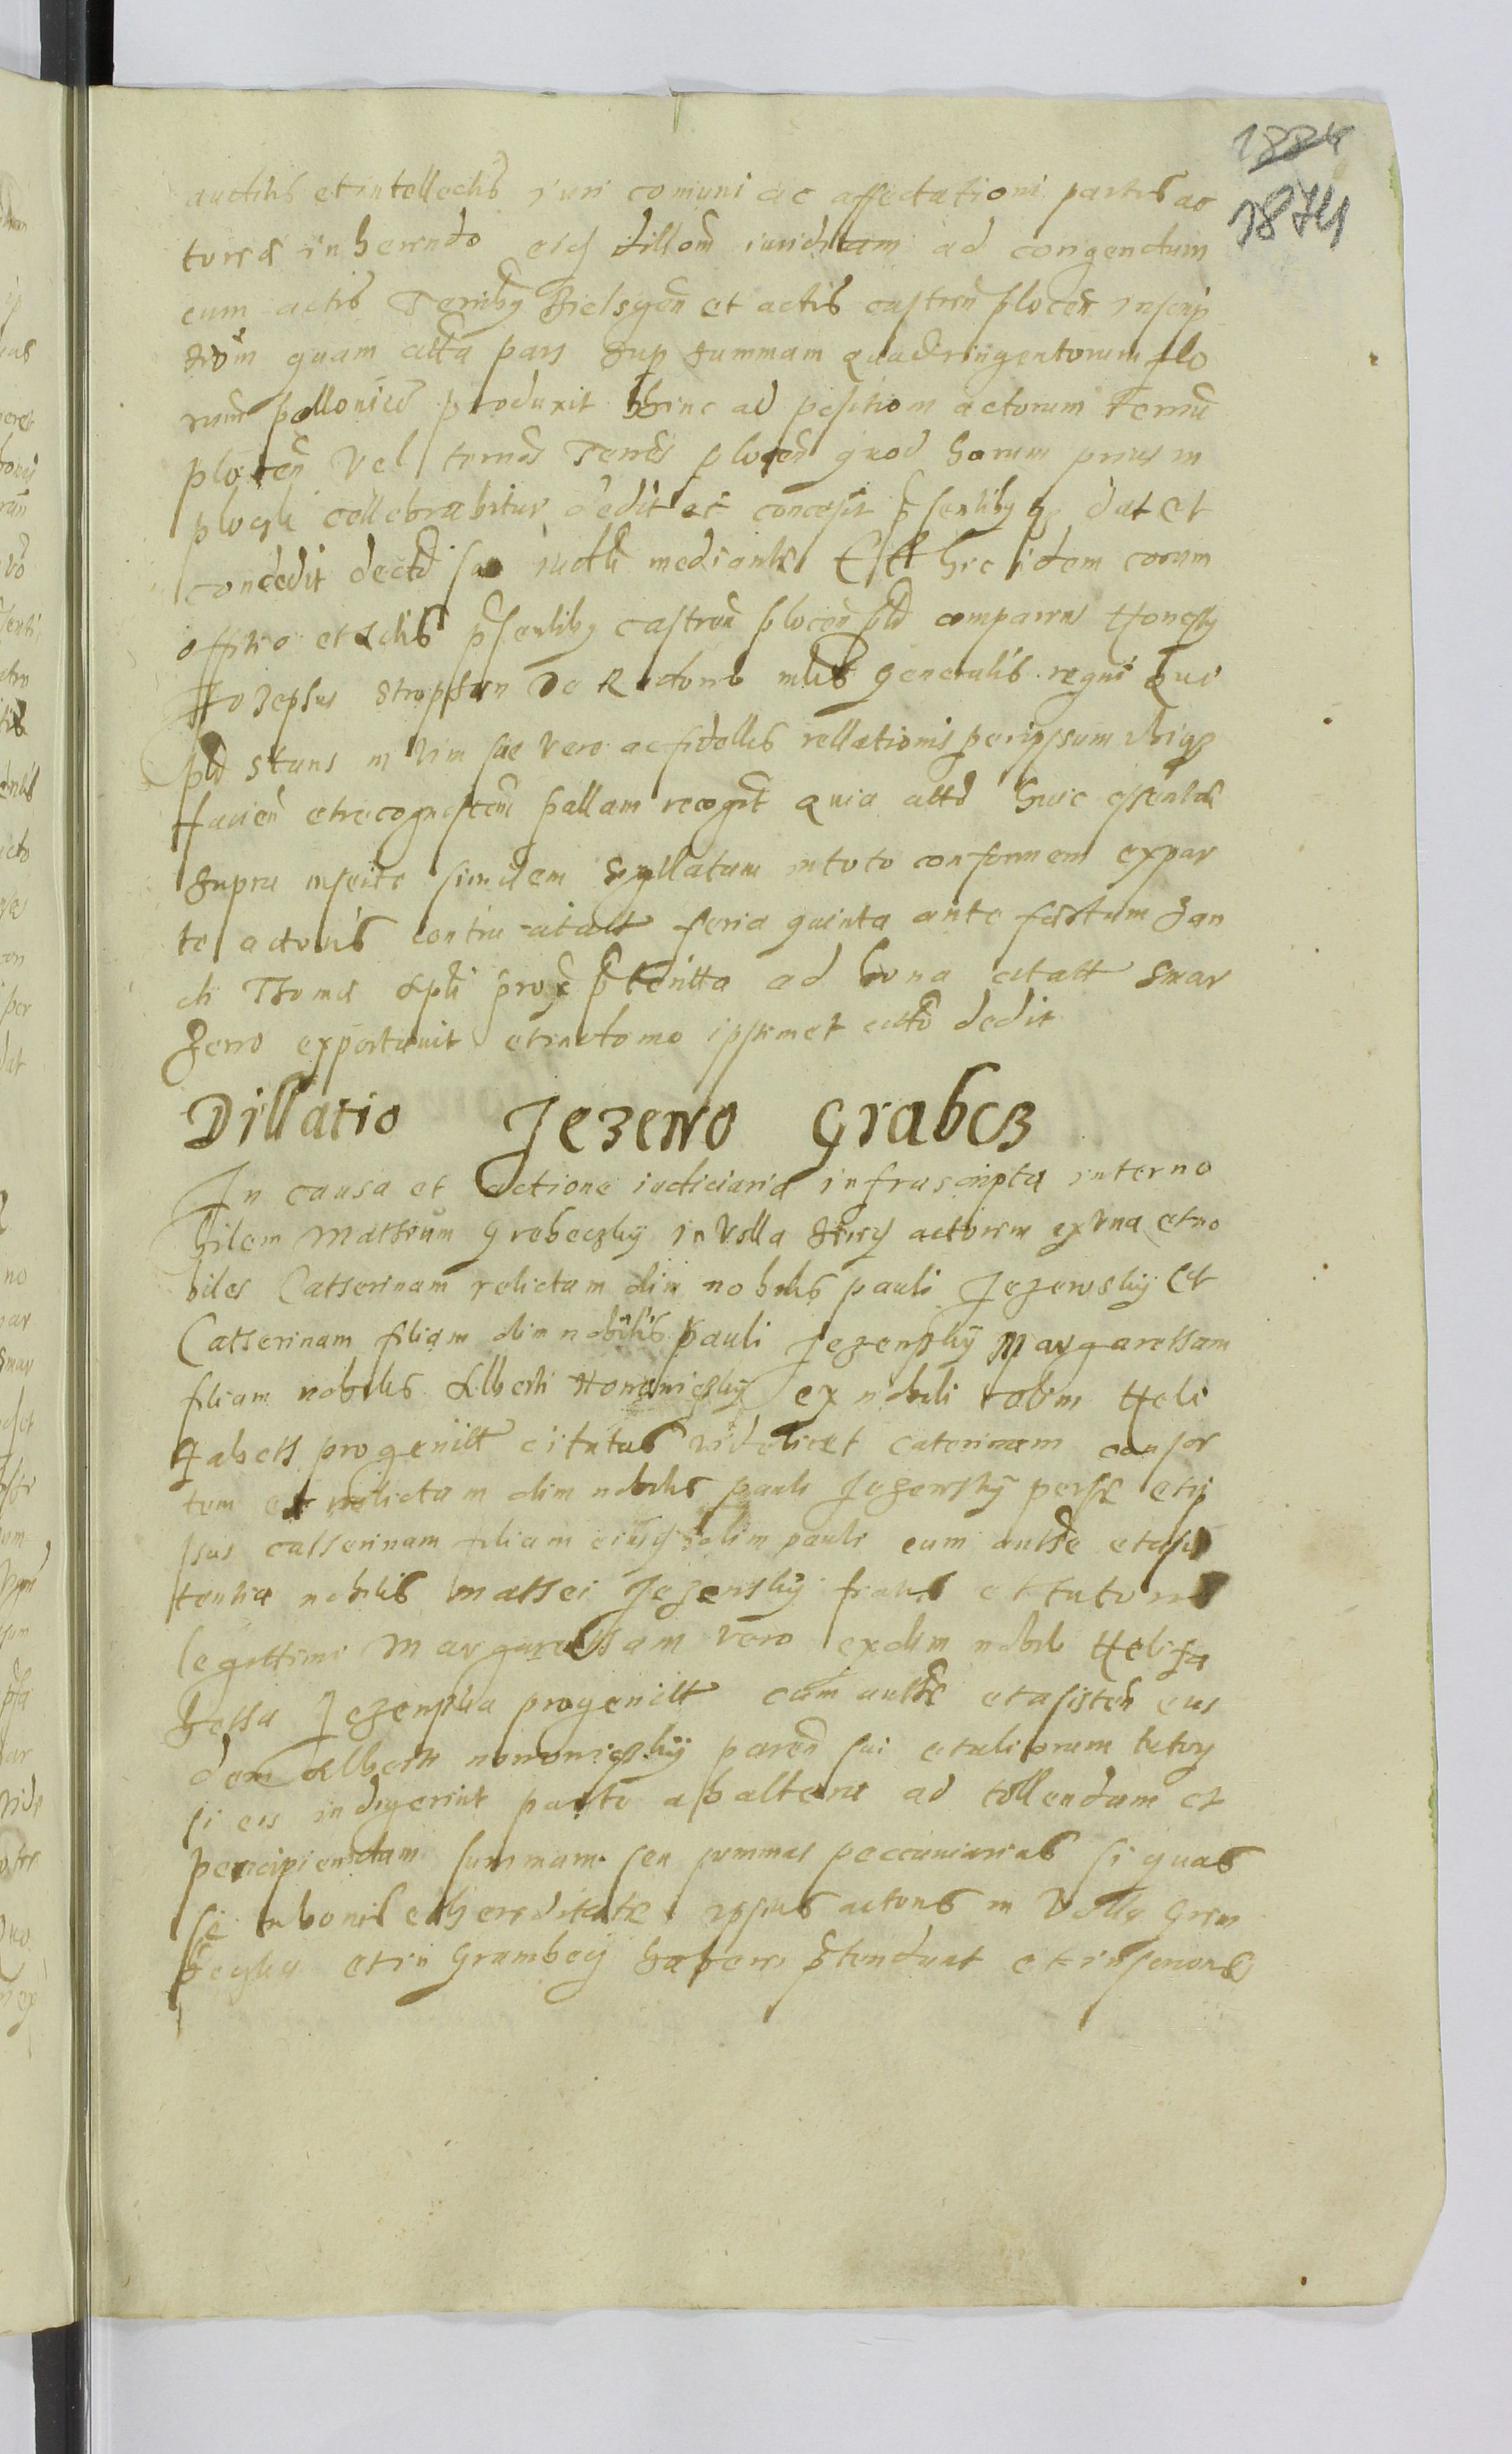 1884
1874
auditis et intellectis iuri comuni ac affectationi partis ac
torea inherendo eidē dillom̄ iuridicam ad corrigendum
cum actis Terrīby Bielsgeñ et actis castreñ plocēn inscrip
tiom̄ quam actā pars sup summam quadringentorum flo
renū pollonicū produxit hinc ad positiom actorum Terrīs
plocen̄ vel ternōs Terrēs plocen̄ quod horum prius in
plogk cellebrabitur dedit et concesit p̄sentiby q3 dat et
concedit decto suo iudtī mediante Est hic idem corum
offitio et Actis p̄sentiby castreñ plocen̄ p̄ld comparens Honesty
Jozephus de Radono mlis generalis regni qui
p̄ld stans in vim sue vere ac fidellis rellationis per ipsum ubiq3
facien̄ et recognoscen̄ pallam recogt quia attd huic essentia
supra inserte similem sigillatam in toto conformem expar
te actoris contra citatt feria quinta ante festum San
cti Thoma Apli prox p̄teritta ad bona citatt Smar
zewo exportavit et in domo ipsimet citto dedit
Dillatio Jezewo Grabcz
In causa et actione iudiciaria infrascripta inter no
bilem Mathium Grebeczky in Vslla Grecy actorem ex vna et no
biles Catherinam relictam olim nobilis pauli Jezewsky et
Catherinam filiam olim nobilis pauli Jezewsky Margaretham
filiam nobilis Alberti Nononiczky ex nobili olim Heli
zabeth progenitt citatas videlicet caterinam consor
tem et relictam olim nobilis pauli Jezewsky per se et ip
sus catherinam filiam eiusdē olim pauli cum auttte et assis
tentia nobilis Mathei Jezewsky fratris et tutoris
legittimi Margaretham vero ex olim nobili Heliza
betha Jezewska progenitt cum auttte et asisten̄ eius
dem Alberti nononiczky paren̄ sui et aliorum tutorj
si eis indigerint parte ab altera ad tollendam et
percipiendam summam seu summas peccuniarias si quas
se in bonis et hereditate ipsius actoris in Volla Gram
beczka et in Grambecy habere p̄tendunt et inferiors